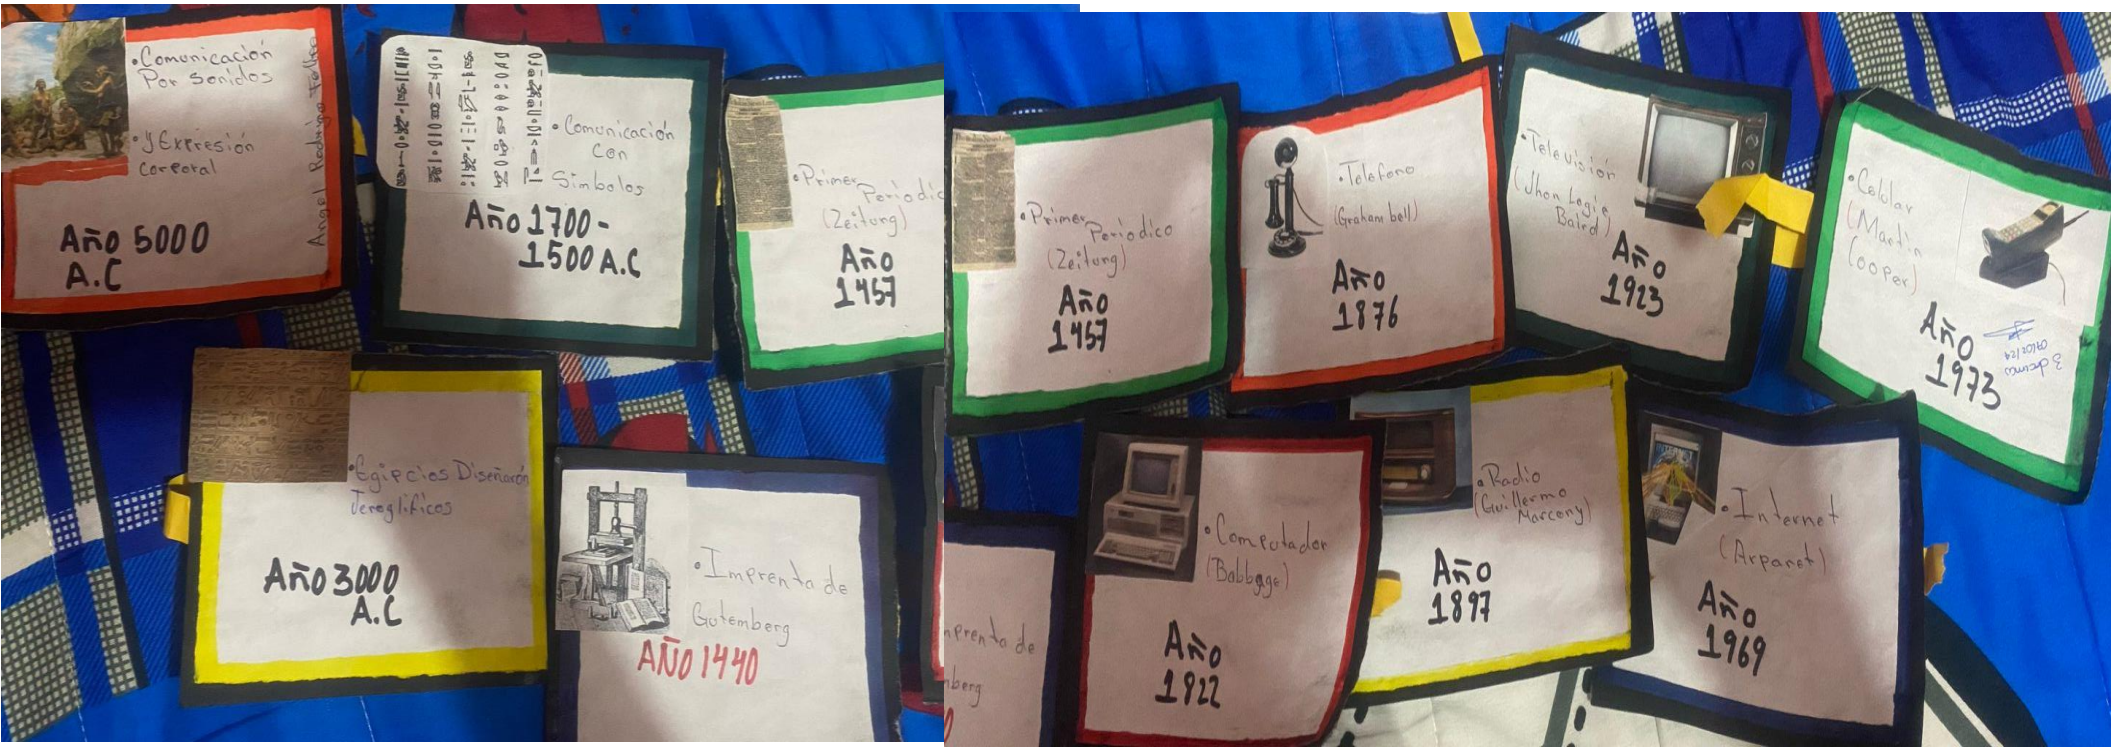 •Comunicación
Por Sonidos
•y Expresión
corporal
Angel Rodrigo
Año 5000
A.C
•Comunicación
Con
Simbolos
Año 1700-
1500 A.C
•Primer
Periodic
(Zeitung)
Año
1457
•Egipcios Diseñarón
Jeroglificos
Año 3000
A.C
•Imprenta de
Gutemberg
AÑO 1440
•Primer
Periodico
(Zeitung)
Año
1457
•Telefono
(Graham bell)
Año
1876
•Television
(Jhon Logie
Baird)
Año
1923
•Celular
(Martin
Cooper)
Año
1973
3 decimas
07/02/24
mprenta de
mberg
•Computador
(Babbage)
Año
1822
•Radio
(Guillermo
Marcony)
Año
1897
INTERNET
•Internet
(Arpanet)
Año
1969